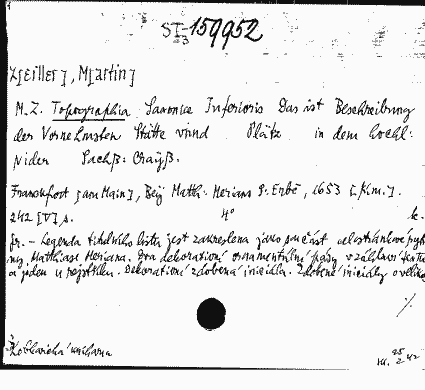 SI3-159952
Z[eiller], M[artin]
M. Z. Topographia Saxoniae Inferioris Das ist Beschreibung
der Vornehmsten Stätte vnnd Plätz in dem hochl:
Nider Sachß: Crayß.
Franckfort [am Main], Bey Matth: Merians S. Erbē, 1653 [Km.].
242 [V] s. 4° k.
fr. – Legenda titulního listu jest zakreslena jako součást celostránkové ryt
iny Matthiase Meriana. Dva dekorativní ornamentální pásy v záhlaví textu
a jeden u rejstříku. Dekorativní zdobená iniciála. Zdobené iniciály
%
knihovna
25
2 42